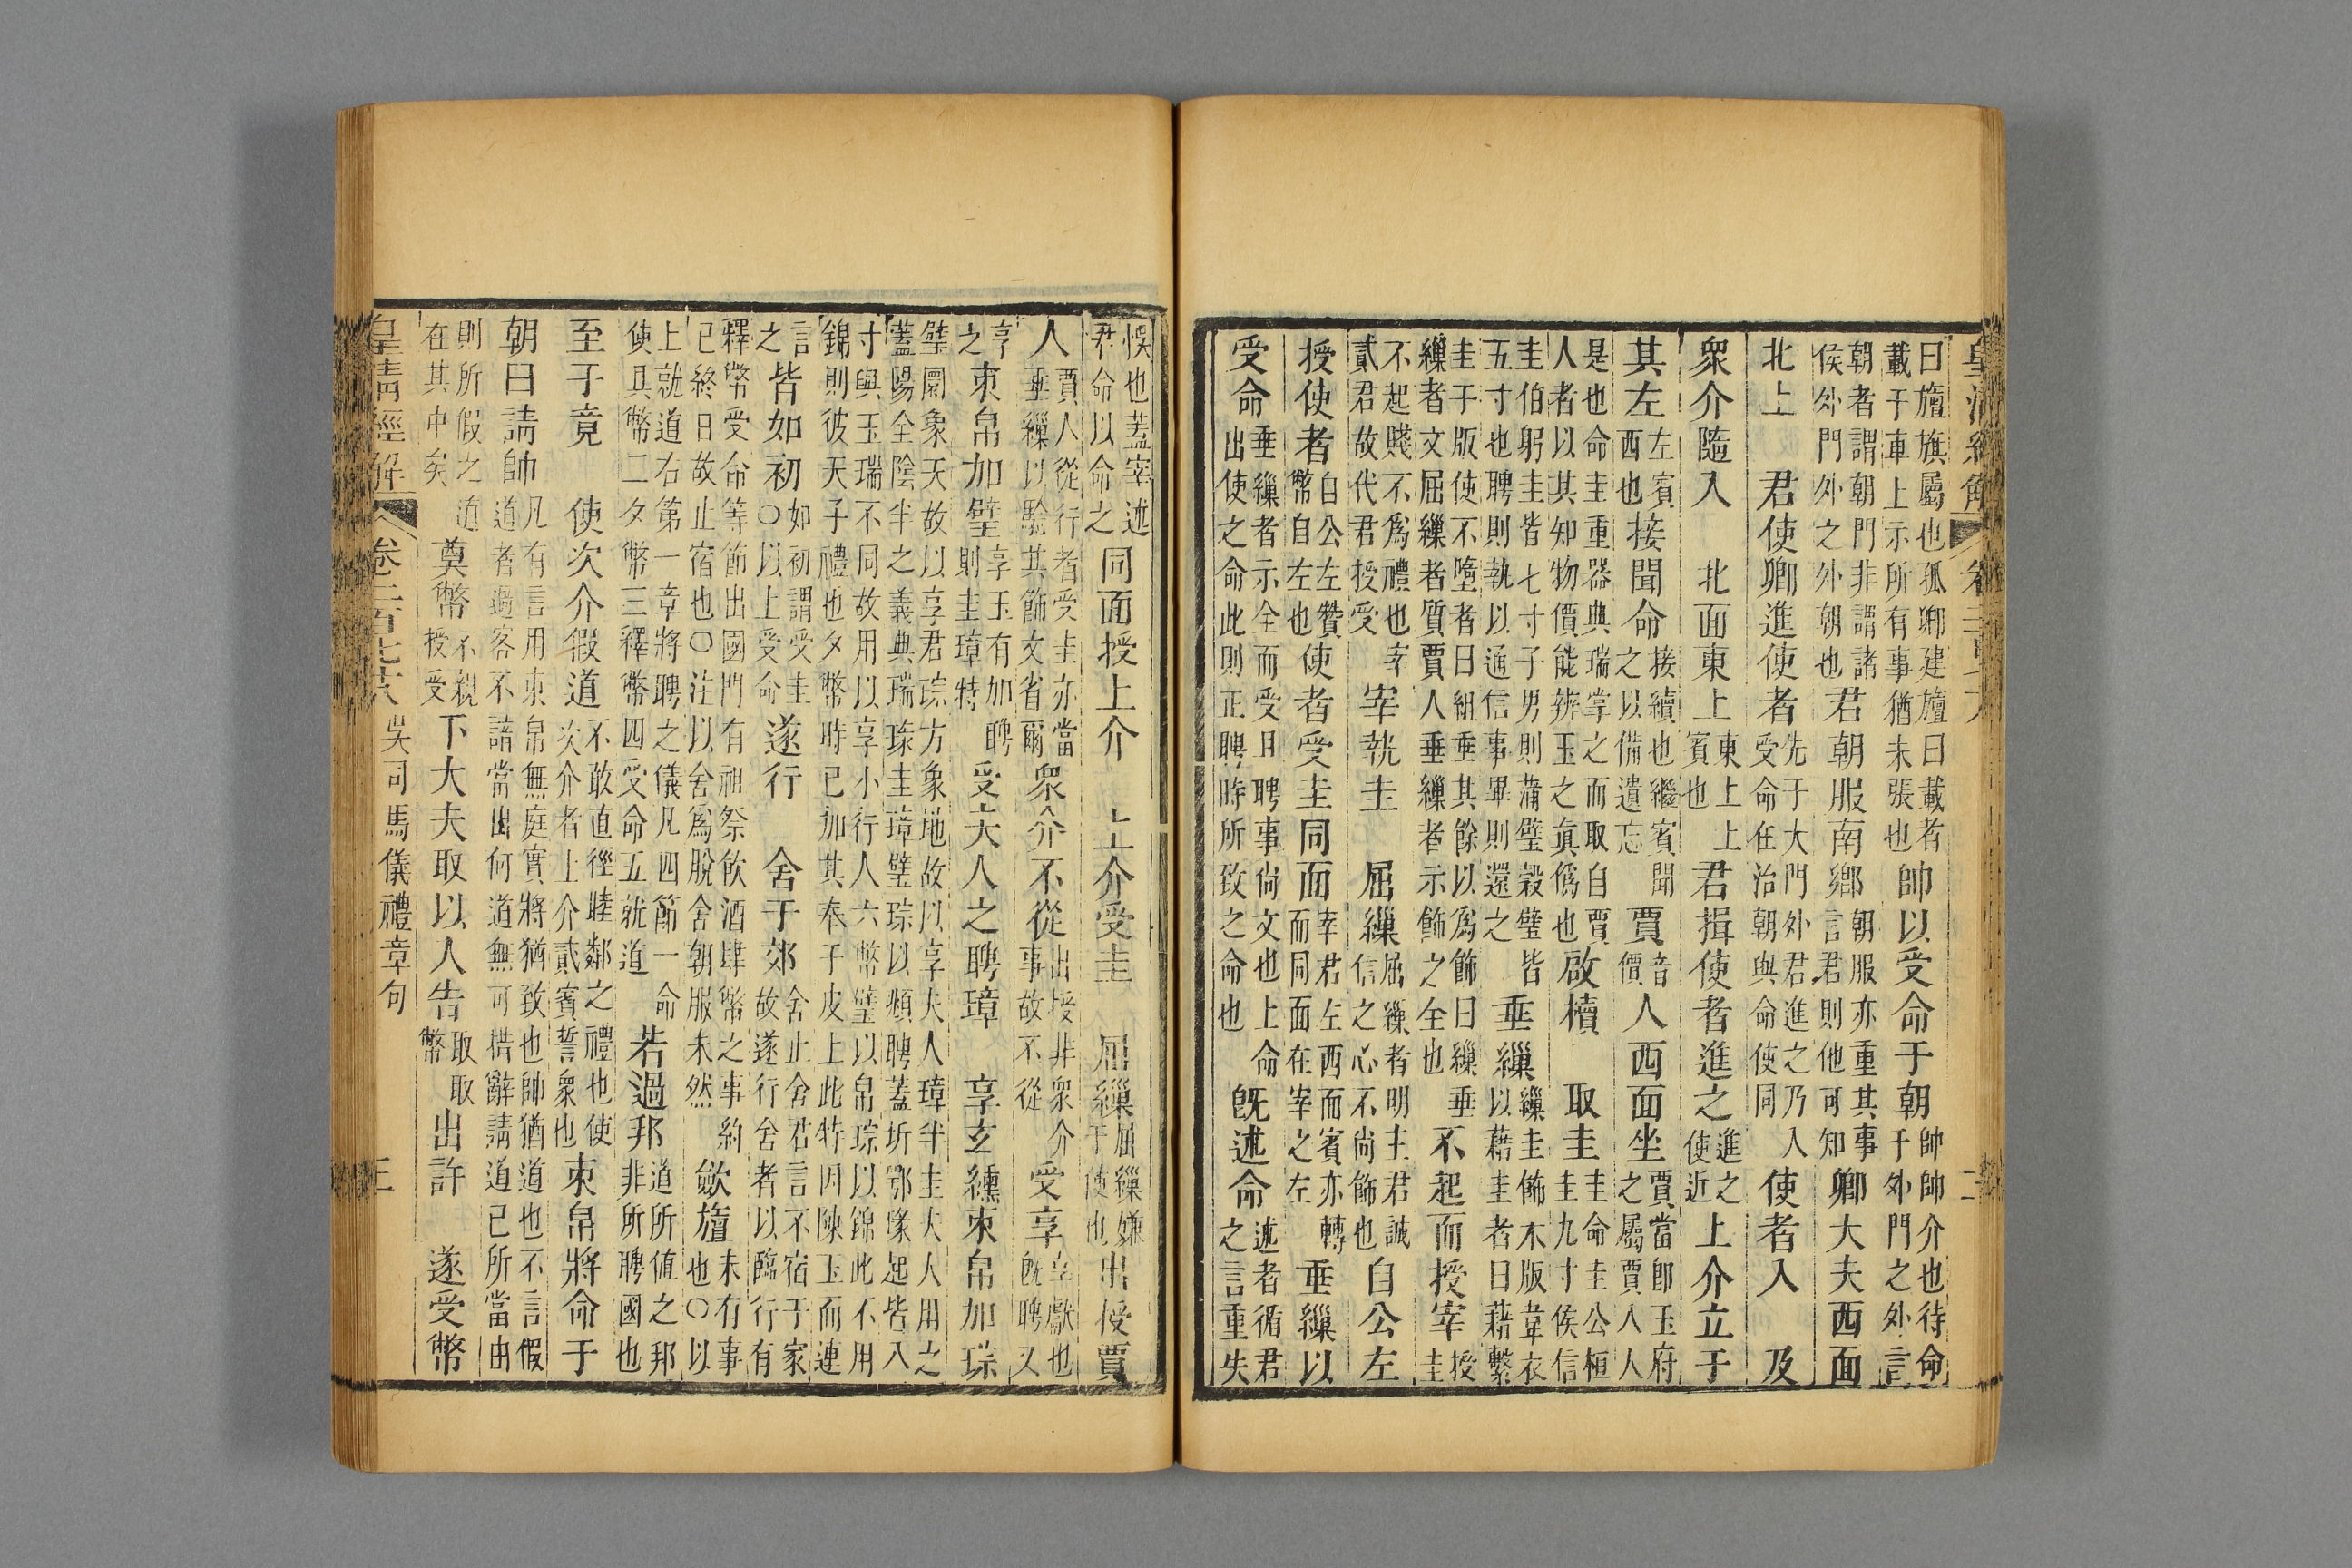 曰旜旗屬也孤卿建旜曰載者載于車上示所有事猶未張也帥以受命于朝帥帥介也待命于外門之外言
朝者謂朝門非謂諸侯外門外之外朝也君朝服南鄉朝服亦重其事言君則他可知卿大夫西面
北上　君使卿進使者先于大門外君進之乃入受命在治朝與命使同使者入　及
衆介隨入　北面東上東上上賓也君揖使者進之進之使近上介立于
其左左賓西也接聞命接續也繼賓聞之以備遺忘賈音價人西面坐賈當卽玉府之屬賈人人
是也命圭重器典瑞掌之而取自賈人者以其知物價能辨玉之真僞也啟櫝　取圭圭命圭公桓圭九寸侯信
圭伯躬圭皆七寸子男則蒲璧穀璧皆五寸也聘則執以通信事畢則還之垂繅繅圭飾木版韋衣以藉圭者曰藉繫
圭于版使不墮者曰組垂其餘以爲飾曰繅垂繅者文屈繅者質賈人垂繅者示飾之全也不起而授宰授圭
不起賤不爲禮也宰貳君故代君授受宰執圭　屈繅屈繅者明主君誠信之心不尚飾也自公左
授使者自公左贊幣自左也使者受圭同面宰君左西而賓亦轉而同面在宰之左垂繅以
受命垂繅者示全而受曰聘事尚文也上命出使之命此則正聘時所致之命也既述命述者循君之言重失
悞也蓋宰述君命以命之同面授上介　上介受圭　屈繅屈繅嫌于使也出授賈
人賈人從行者受圭亦當垂繅以驗其飾文省爾衆介不從出授非衆介事故不從受享享獻也既聘又
享之束帛加璧享玉有加聘則圭璋特受夫人之聘璋　享玄纁束帛加琮
璧圜象天故以享君琮方象地故以享夫人璋半圭夫人用之蓋陽全陰半之義典瑞瑑圭璋璧琮以頫聘蓋圻鄂瑑起皆八
寸與玉瑞不同故用以享小行人六幣璧以帛琮以錦此不用錦則彼天子禮也夕幣時已加其奉于皮上此特因陳玉而連
言之皆如初如初謂受圭〇以上受命遂行　舍于郊舍止舍君言不宿于家故遂行舍者以臨行有
釋幣受命等節出國門有祖祭飲酒肆幣之事約已終日故止宿也〇注以舍爲脫舍朝服未然斂旜未有事也〇以
上就道右第一章將聘之儀凡四節一命使具幣二夕幣三釋幣四受命五就道若過邦道所値之邦非所聘國也
至于竟　使次介假道不敢直徑睦鄰之禮也使次介者上介貳賓誓衆也束帛將命于
朝曰請帥凡有言用束帛無庭實將猶致也帥猶道也不言假道者過客不諳當由何道無可措辭請道已所當由
則所假之道在其中矣奠幣不親授受下大夫取以人告取取幣出許　遂受幣
皇清經解　卷二百七十六　吳司馬儀禮章句　三